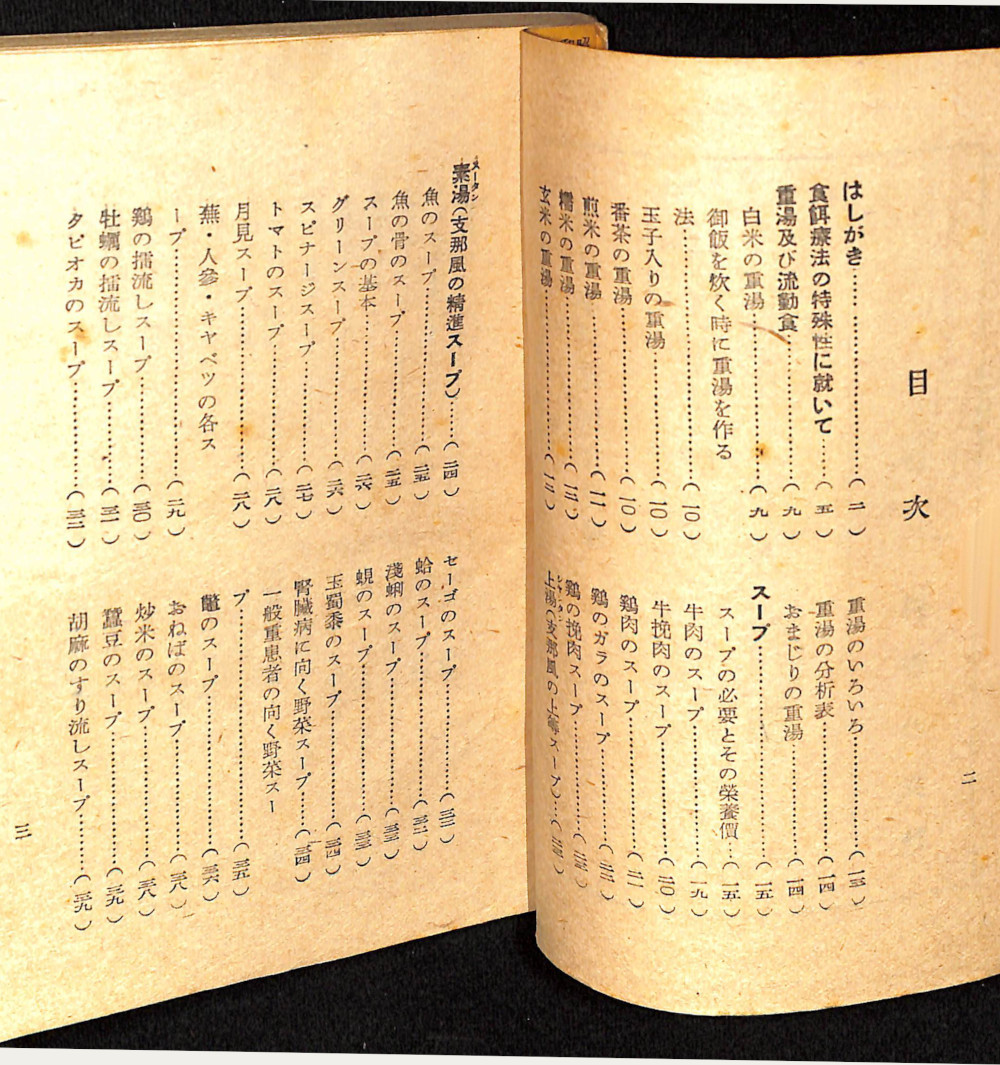 目次
はしがき……(二)
食餌療法の特殊性に就いて……(五)
重湯及び流動食……(九)
白米の重湯……(九)
御飯を炊く時に重湯を作る
法……(一〇)
玉子入りの重湯……(一〇)
番茶の重湯……(一〇)
煎米の重湯……(一一)
糯米の重湯……(一二)
玄米の重湯……(一二)
重湯のいろいろ……(一三)
重湯の分析表……(一四)
おまじりの重湯……(一四)
スープ……(一五)
スープの必要とその栄養價…(一五)
牛肉のスープ……(一九)
牛挽肉のスープ……(二〇)
鶏肉のスープ……(二一)
鶏のガラのスープ……(二二)
鶏の挽肉スープ……(二三)
上湯(支那風の上等スープ)…(二三)
二
スータン
素湯(支那風の精進スープ)……(二四)
魚のスープ……(二五)
魚の骨のスープ……(二五)
スープの基本……(二六)
グリーンスープ……(二六)
スピナージスープ……(二七)
トマトのスープ……(二八)
月見スープ……(二八)
蕪・人參・キヤベツの各ス
ープ……(二九)
鶏の擂流しスープ……(三〇)
牡蠣の擂流しスープ……(三一)
タピオカのスープ……(三二)
セーゴのスープ……(三二)
蛤のスープ……(三二)
淺蜊のスープ……(三三)
蜆のスープ……(三三)
玉蜀黍のスープ……(三四)
腎臓病に向く野菜スープ……(三四)
一般重患者の向く野菜スー
プ……(三五)
鼈のスープ……(三六)
おねばのスープ……(三八)
炒米のスープ……(三八)
蠶豆のスープ……(三九)
胡麻のすり流しスープ……(三九)
三